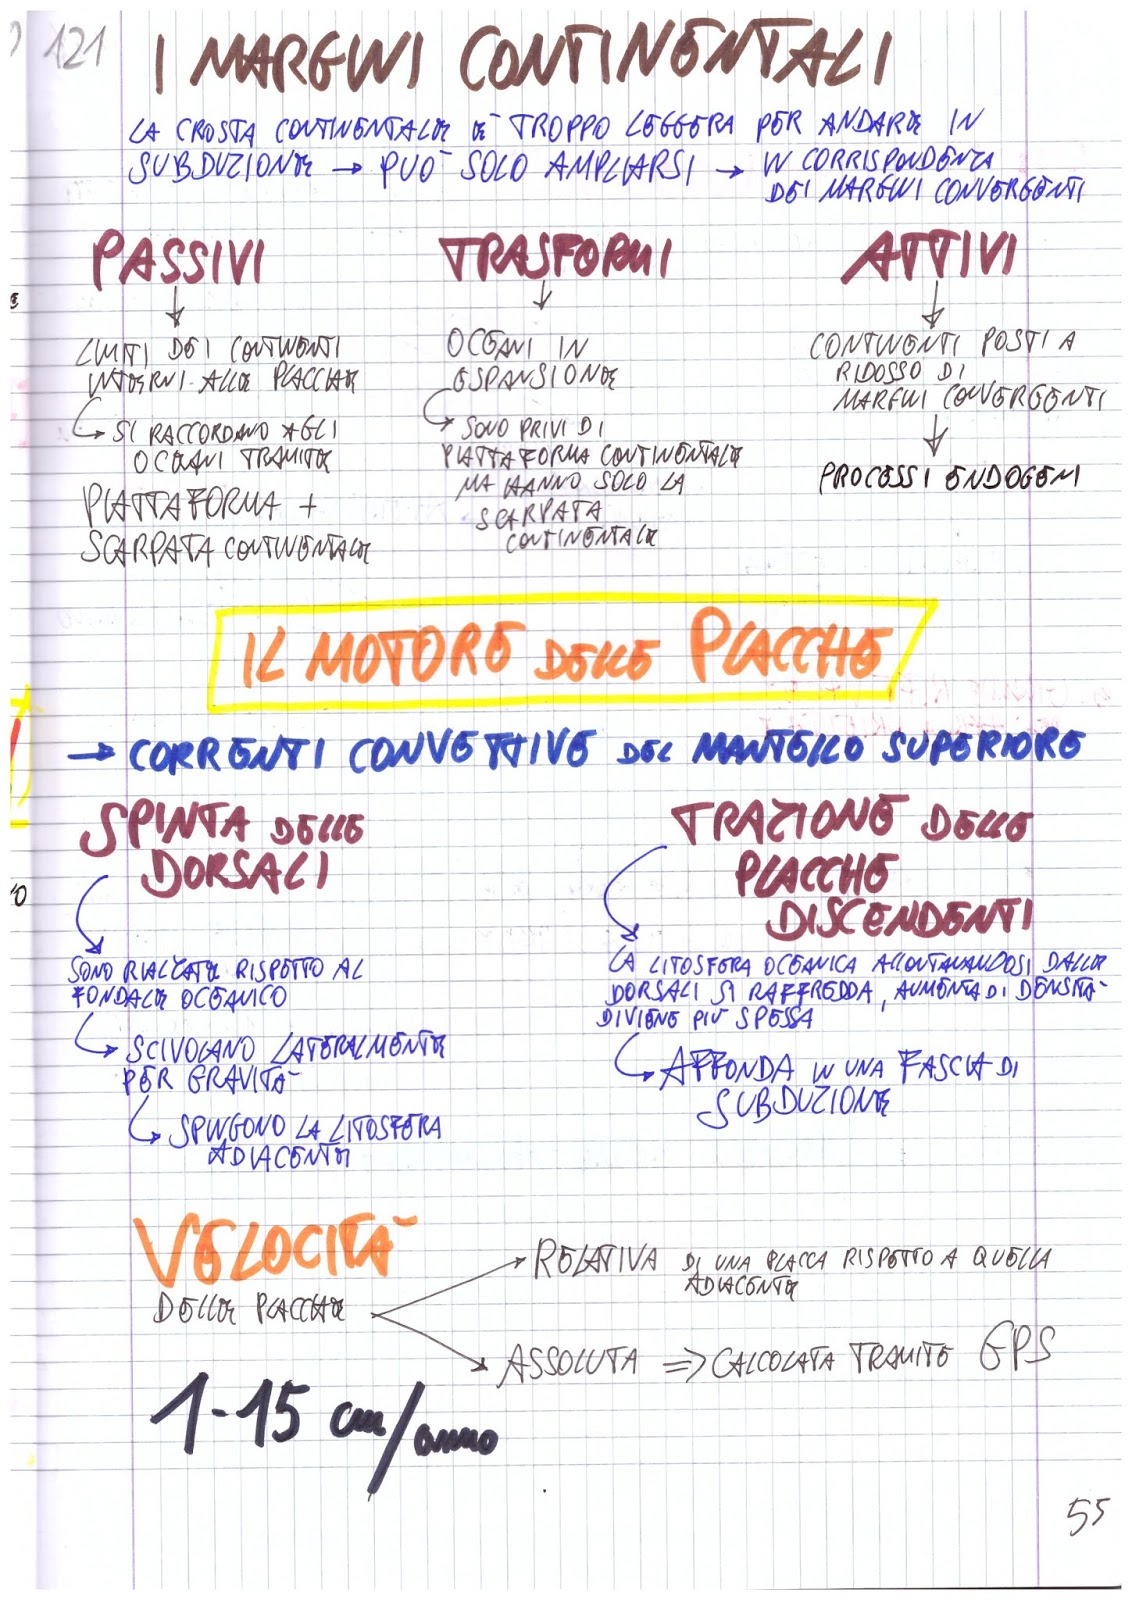 121
I MARGINI CONTINENTALI
LA CROSTA CONTINENTALE È TROPPO LEGGERA PER ANDARE IN
SUBDUZIONE → PUÒ SOLO AMPLIARSI → IN CORRISPONDENZA
DEI MARGINI CONVERGENTI
PASSIVI
LIMITI DEI CONTINENTI
INTERNI ALLE PLACCHE
SI RACCORDANO AGLI
OCEANI TRAMITE
PIATTAFORMA +
SCARPATA CONTINENTALE
TRASFORMI
OCEANI IN
ESPANSIONE
SONO PRIVI DI
PIATTAFORMA CONTINENTALE
MA HANNO SOLO LA
SCARPATA
CONTINENTALE
ATTIVI
CONTINENTI POSTI A
RIDOSSO DI
MARGINI CONVERGENTI
PROCESSI ENDOGENI
IL MOTORE DELLE PLACCHE
→ CORRENTI CONVETTIVE DEL MANTELLO SUPERIORE
SPINTA DELLE
DORSALI
SONO RIALZATE RISPETTO AL
FONDALE OCEANICO
SCIVOLANO LATERALMENTE
PER GRAVITÀ
SPINGONO LA LITOSFERA
ADIACENTE
TRAZIONE DELLE
PLACCHE
DISCENDENTI
LA LITOSFERA OCEANICA ALLONTANANDOSI DALLE
DORSALI SI RAFFREDDA, AUMENTA DI DENSITÀ
DIVIENE PIÙ SPESSA
AFFONDA IN UNA FASCIA DI
SUBDUZIONE
VELOCITÀ
DELLE PLACCHE
RELATIVA DI UNA PLACCA RISPETTO A QUELLA
ADIACENTE
ASSOLUTA => CALCOLATA TRAMITE GPS
1-15 cm/anno
55